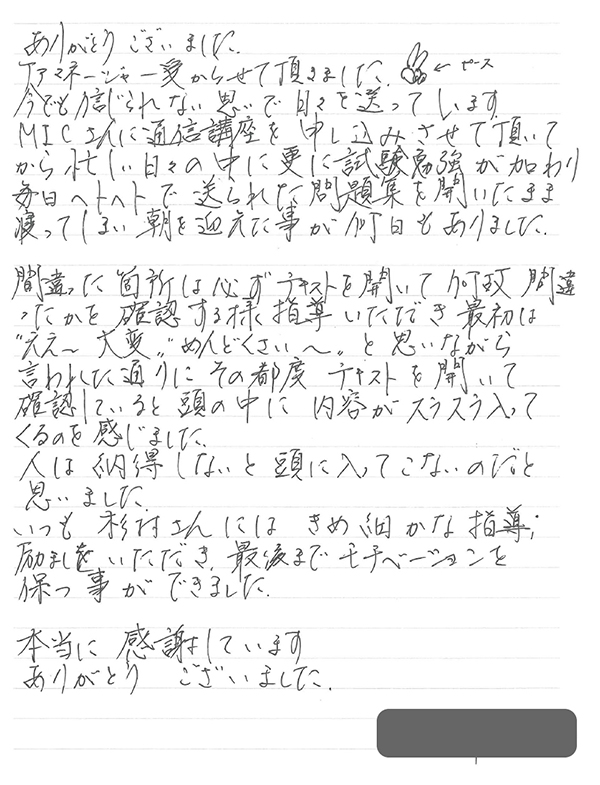 ありがとうございました.
ケアマネージャー受からせて頂きました. ← ピース
今でも信じられない思いで日々を送ってします
MICさんに通信講座を申し込みさせて頂いて
から忙しい日々の中に更に試験勉強が加わり
毎日ヘトヘトで送られた問題集を開いたまま
寝ってしまい朝を迎えた事が何日もありました.
間違った箇所は必ずテキストを開いて何故間違
ったかを確認する様指導いただき最初は
"ええ〜大変〟"めんどくさい〜〟と思いながら
言われた通りにその都度テキストを開いて
確認していると頭の中に内容がスラスラ入って
くるのを感じました.
人は納得しないと頭に入ってこないのだと
思いました.
いつも杉村さんにはきめ細かな指導,
励ましをいただき,最後までモチベーションを
保つ事ができました.
本当に感謝しています
ありがとうございました.